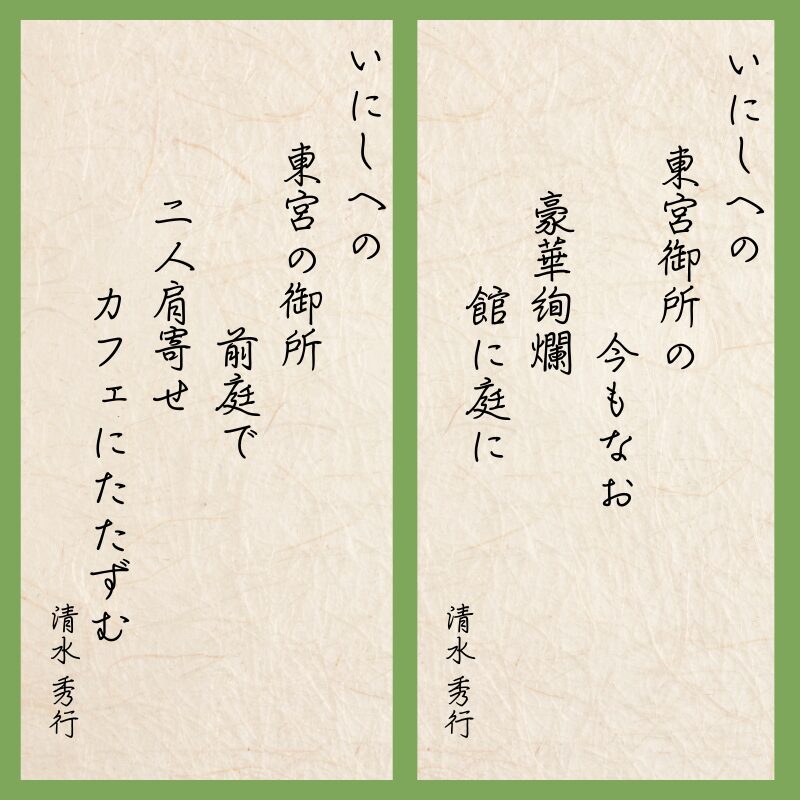 いにしへの
東宮御所の
今もなお
豪華絢爛
館に庭に
清水 秀行
いにしへの
東宮の御所
前庭で
二人肩寄せ
カフェにたたずむ
清水 秀行